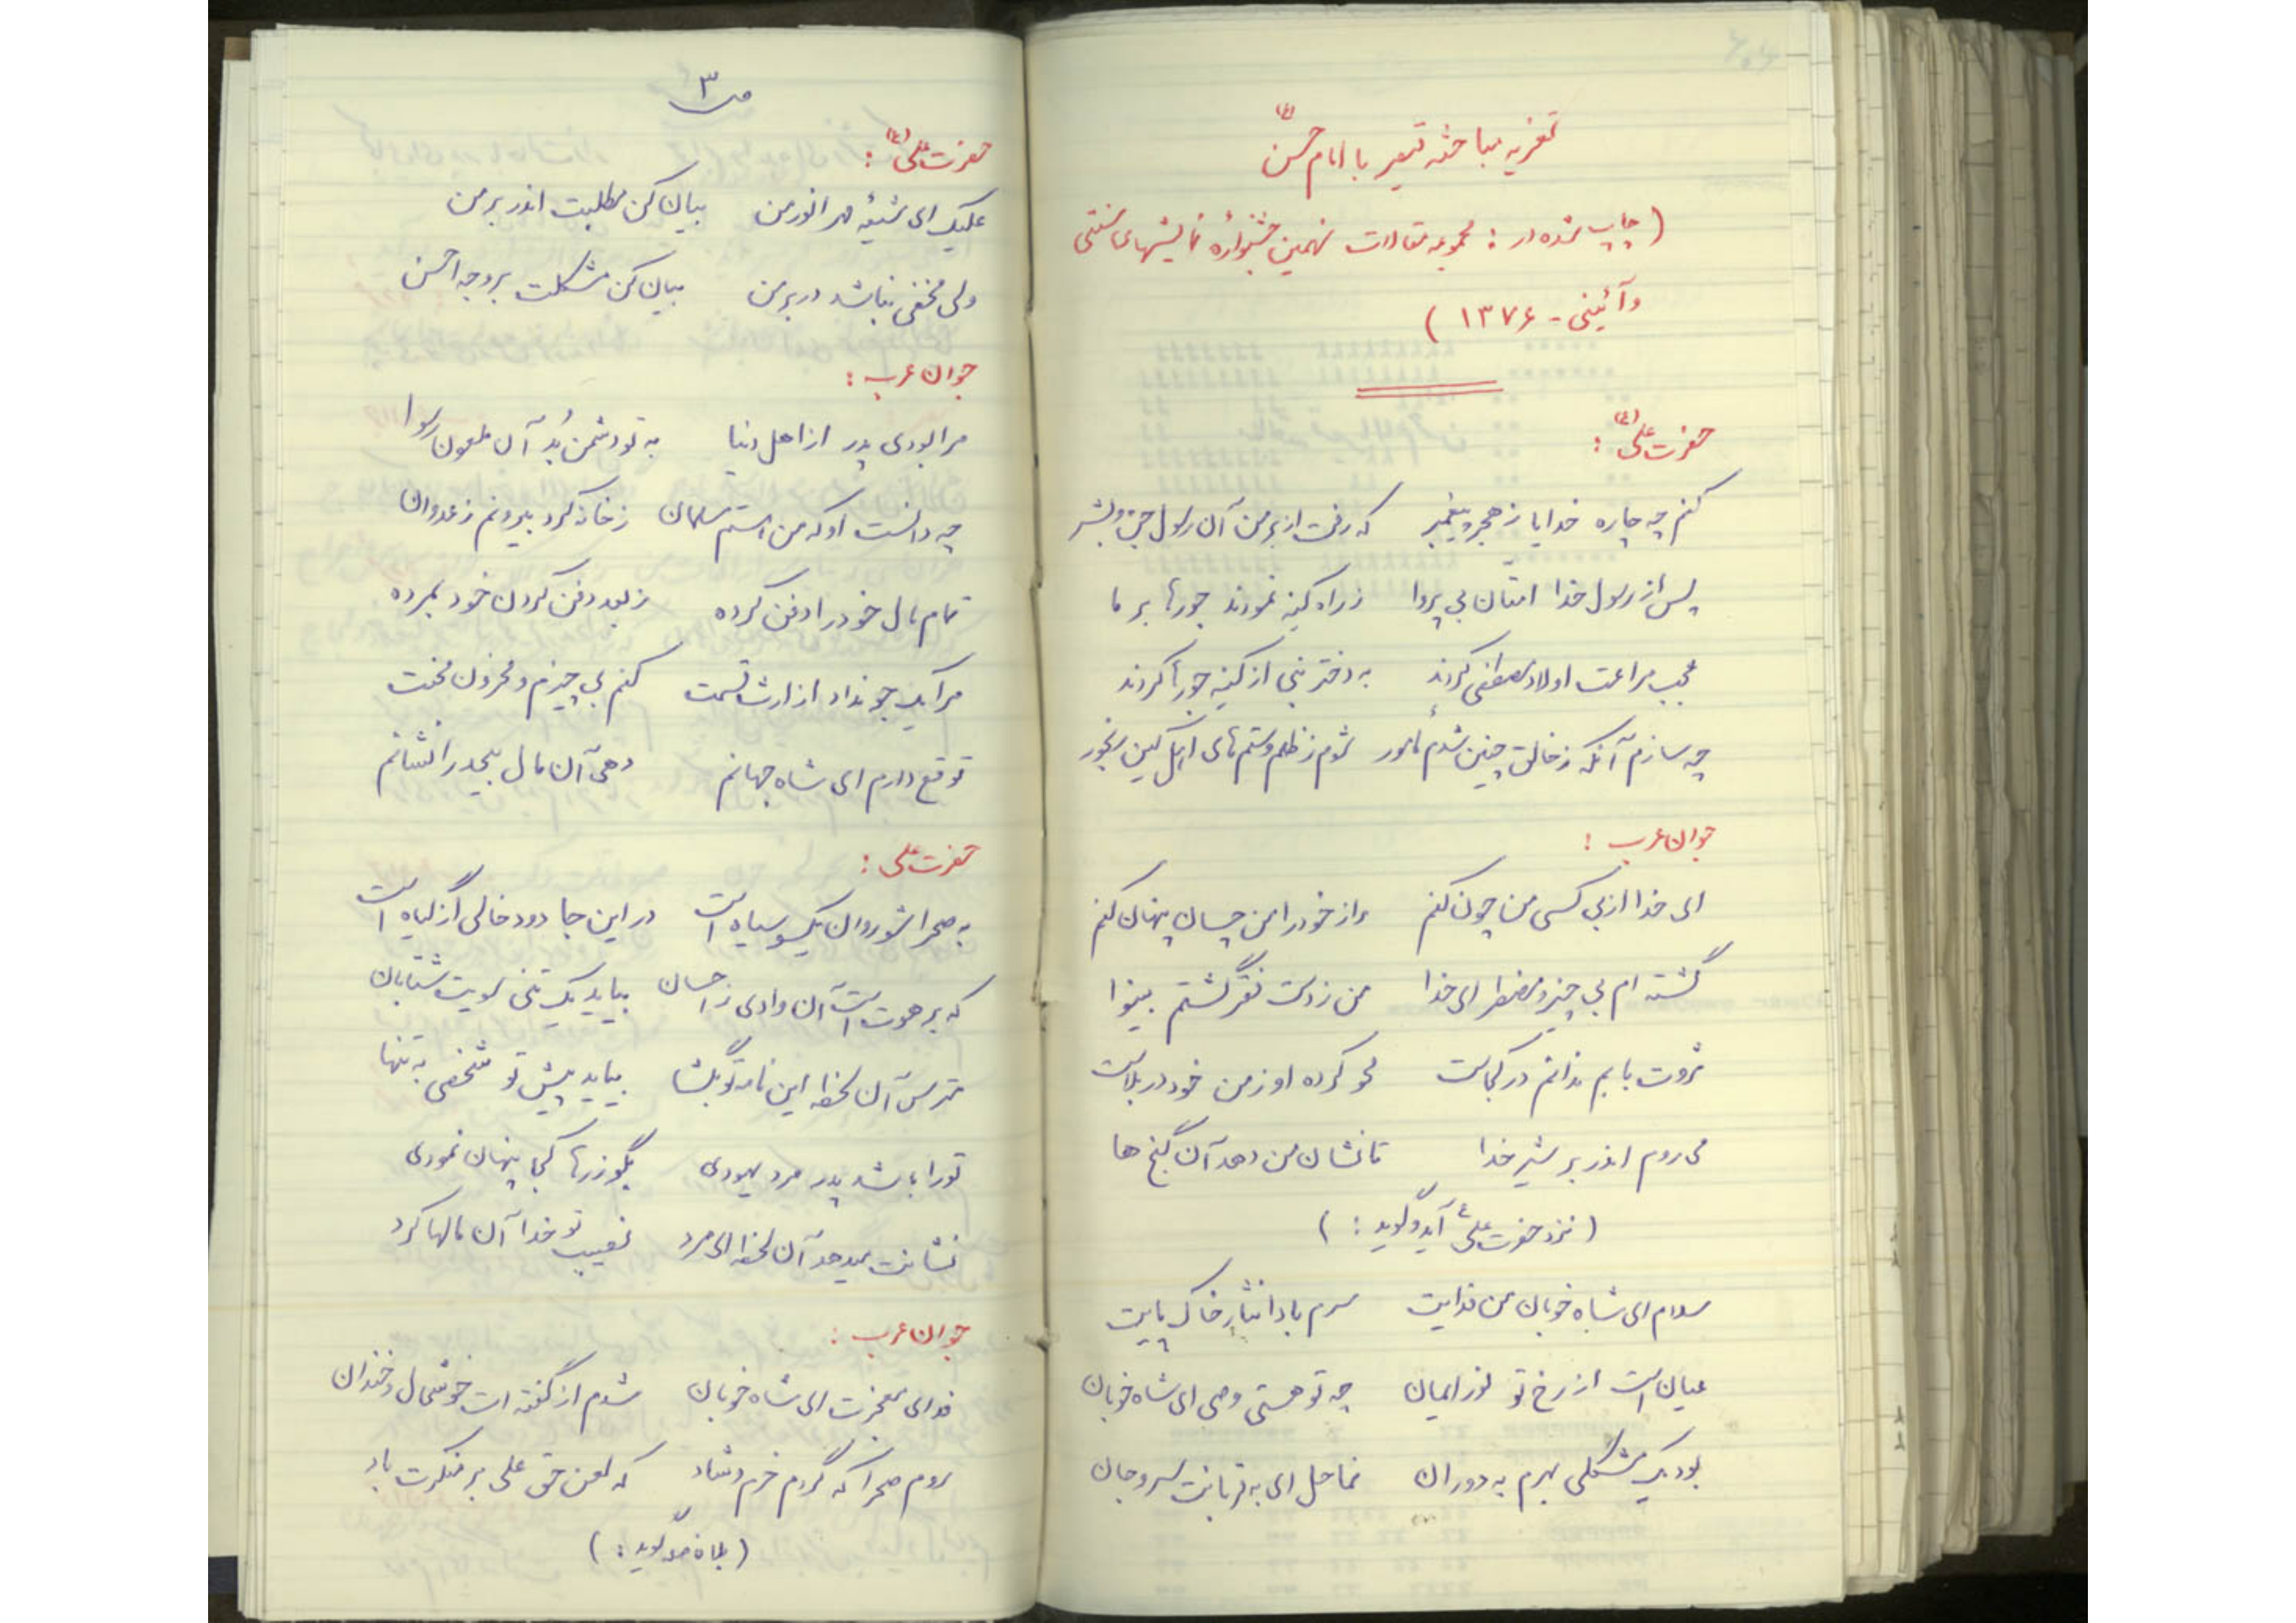 تعزیه مباحثه قیصر با امام حسن (ع)
(چاپ شده در : مجموعه مقالات نهمین جشنوارهٔ نمایشهای سنتی
و آئینی - ۱۳۷۶ )
حضرت علی (ع) :
کنم چه چاره خدایا ز هجر پیغمبر که رفت از بر من آن رسول جن و بشر
پس از رسول خدا امتان بی پروا ز راه کینه نمودند جورها بر ما
عجب مراعت اولاد مصطفی کردند به دختر نبی از کینه جورها کردند
چه سازم آنکه ز خالق چنین شدم مأمور شوم ز ظلم و ستم های اهل کین رنجور
جوان عرب :
ای خدا از بی کسی من چون کنم راز خود را من چسان پنهان کنم
گشته ام بی چیز و مضطر ای خدا من ز دست فقر گشتم بینوا
ثروت بابم ندانم در کجاست محو کرده او ز من خود در بلاست
می روم اندر بر شیر خدا تا نشان من دهد آن گنج ها
( نزد حضرت علی ع آید و گوید : )
سلام ای شاه خوبان من فدایت سرم بادا نثار خاک پایت
عیان است از رخ تو نور ایمان چه تو هستی وصی ای شاه خوبان
بود یک مشکلی بهرم به دوران نما حل ای به قربانت سر و جان
ص ۳
حضرت علی (ع) :
علیک ای شیعهٔ مهر انور من بیان کن مطلبت اندر بر من
ولی مخفی نباشد در بر من بیان کن مشکلت بر وجه احسن
جوان عرب :
مرا بودی پدر از اهل دنیا به تو دشمن بُد آن ملعون رسوا
چه دانست او که من هستم مسلمان ز خانه کرد بیرونم ز عدوان
تمام مال خود را دفن کرده ز بعد دفن کردن خود بمرده
مرا یک جو نداد از ارث قسمت کنم بی چیزم و محزون محنت
توقع دارم ای شاه جهانم دهی آن مال بیحد را نشانم
حضرت علی :
به صحرا شو روان یکسو سیاه است در این جا دود خالی از گیاه است
که برهوت است آن وادی ز احسان بیاید یک تنی سویت شتابان
مترس آن لحظه این نامه تو بگشا بیاید پیش تو شخصی به تنها
تو را باشد پدر مرد یهودی بگو زرها کجا پنهان نمودی
نشانت میدهد آن لحظه ای مرد نصیب تو خدا آن مالها کرد
جوان عرب :
فدای معجزت ای شاه خوبان شدم از گفته ات خوشحال و خندان
روم صحرا که گردم خرم و شاد که لعن حق علی بر منکرت باد
گوید : )